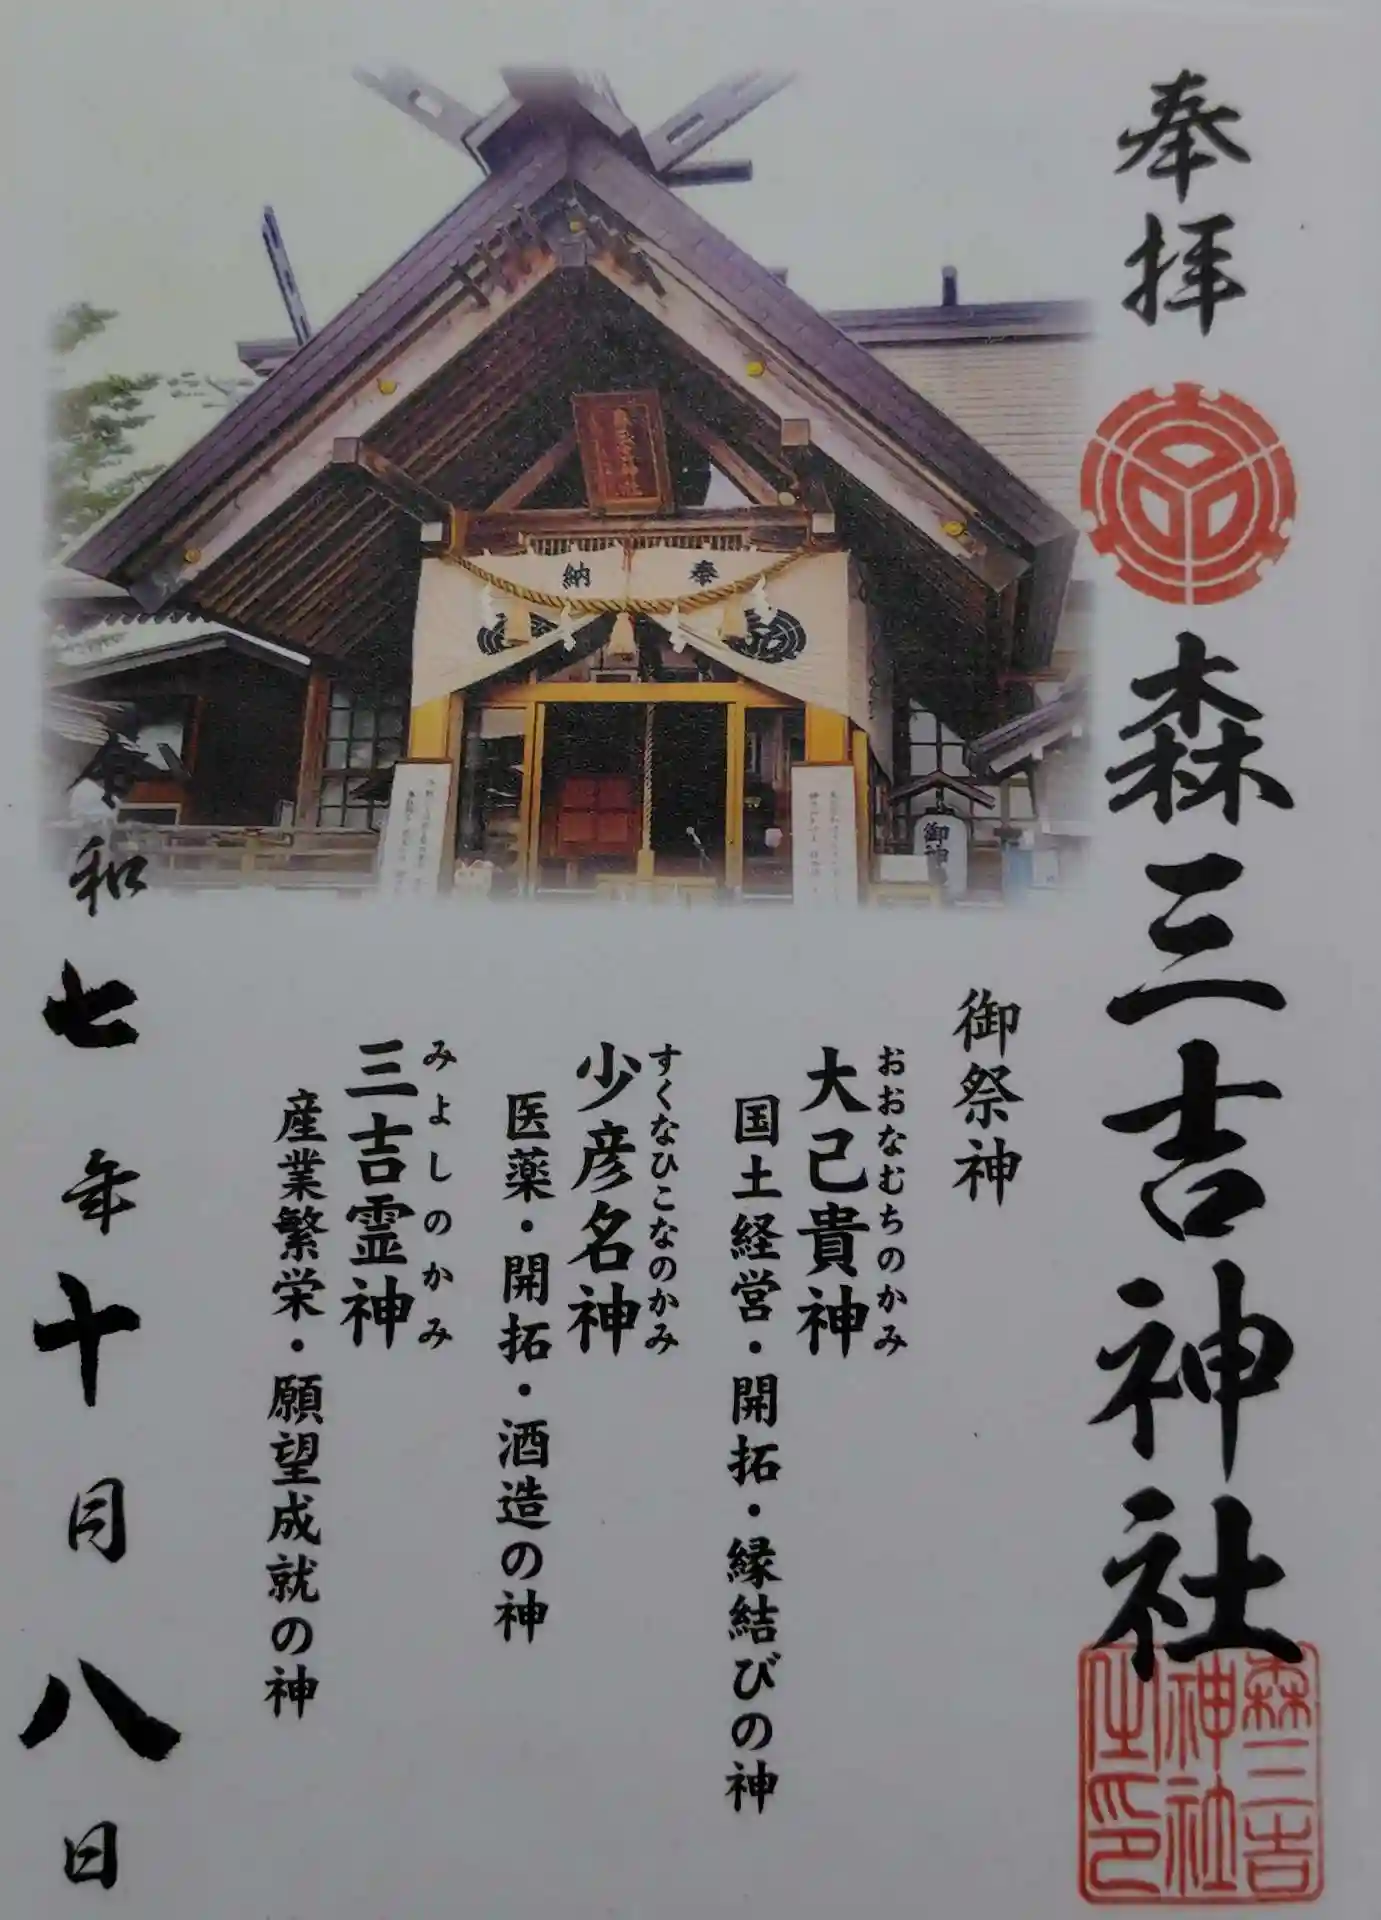 奉拝
森三吉神社
森三吉
神社
之印
御祭神
おおなむちのかみ
大己貴神
国土経営・開拓・縁結びの神
すくなひこなのかみ
少彦名神
医薬・開拓・酒造の神
みよしのかみ
三吉霊神
産業繁栄・願望成就の神
令和七年十月八日
奉納
御神